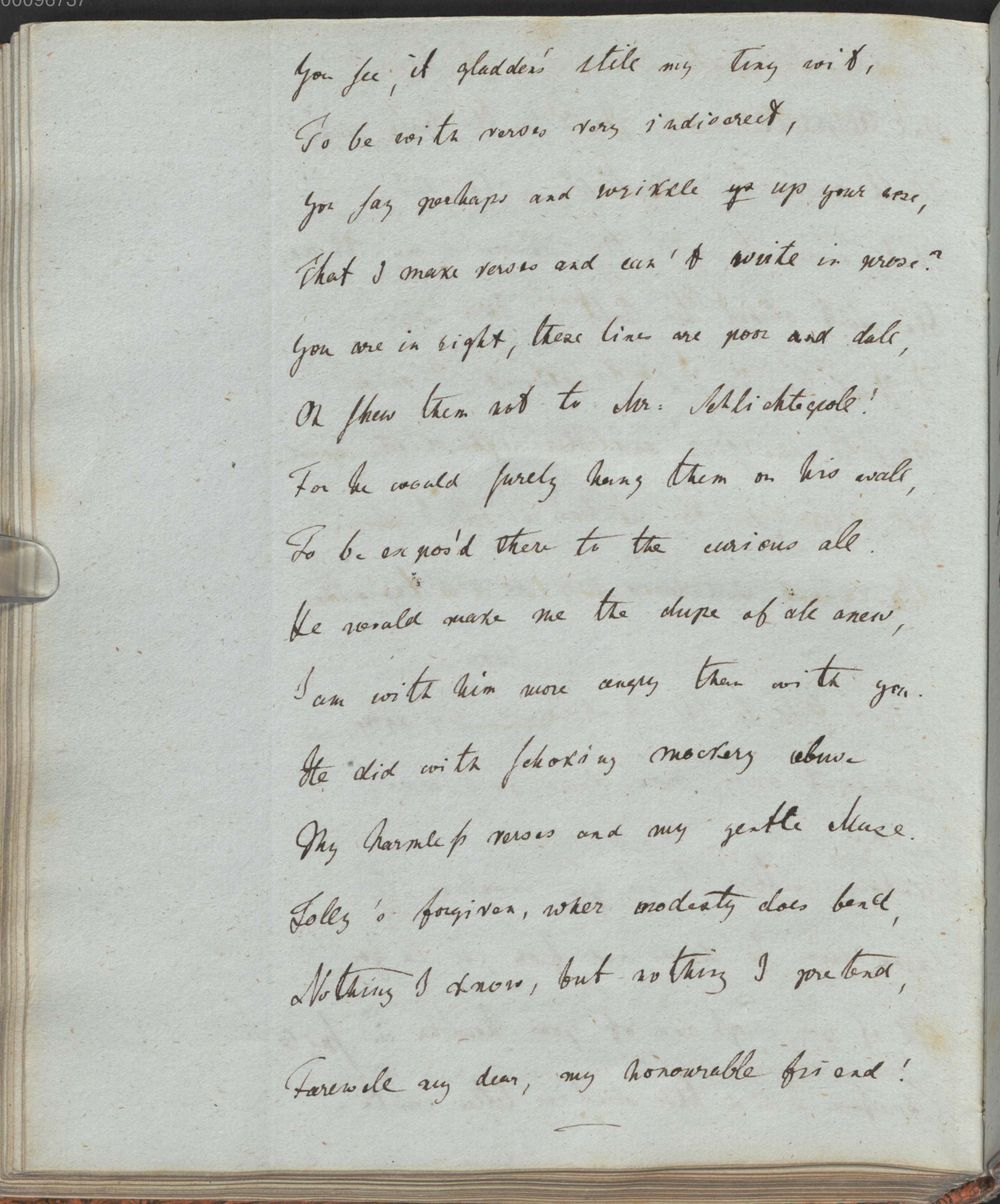 00096737
You see, it gladden's still my tiny wit,
To be with verses very indiscreet,
You say perhaps and wrinkle up your nose,
That I make verses and can't write in prose?
You are in right, these lines are poor and dull,
Oh shew them not to Mr: Schlichtegroll!
For he would surely hang them on his wall,
To be expos'd there to the curious all.
He would make me the dupe of all anew,
I am with him more angry than with you.
He did with schoking mockery abuse
My harmless verses and my gentle Muse.
Folly's forgiven, wher modesty does bend,
Nothing I know, but nothing I pretend,
Farewell my dear, my honourable friend!